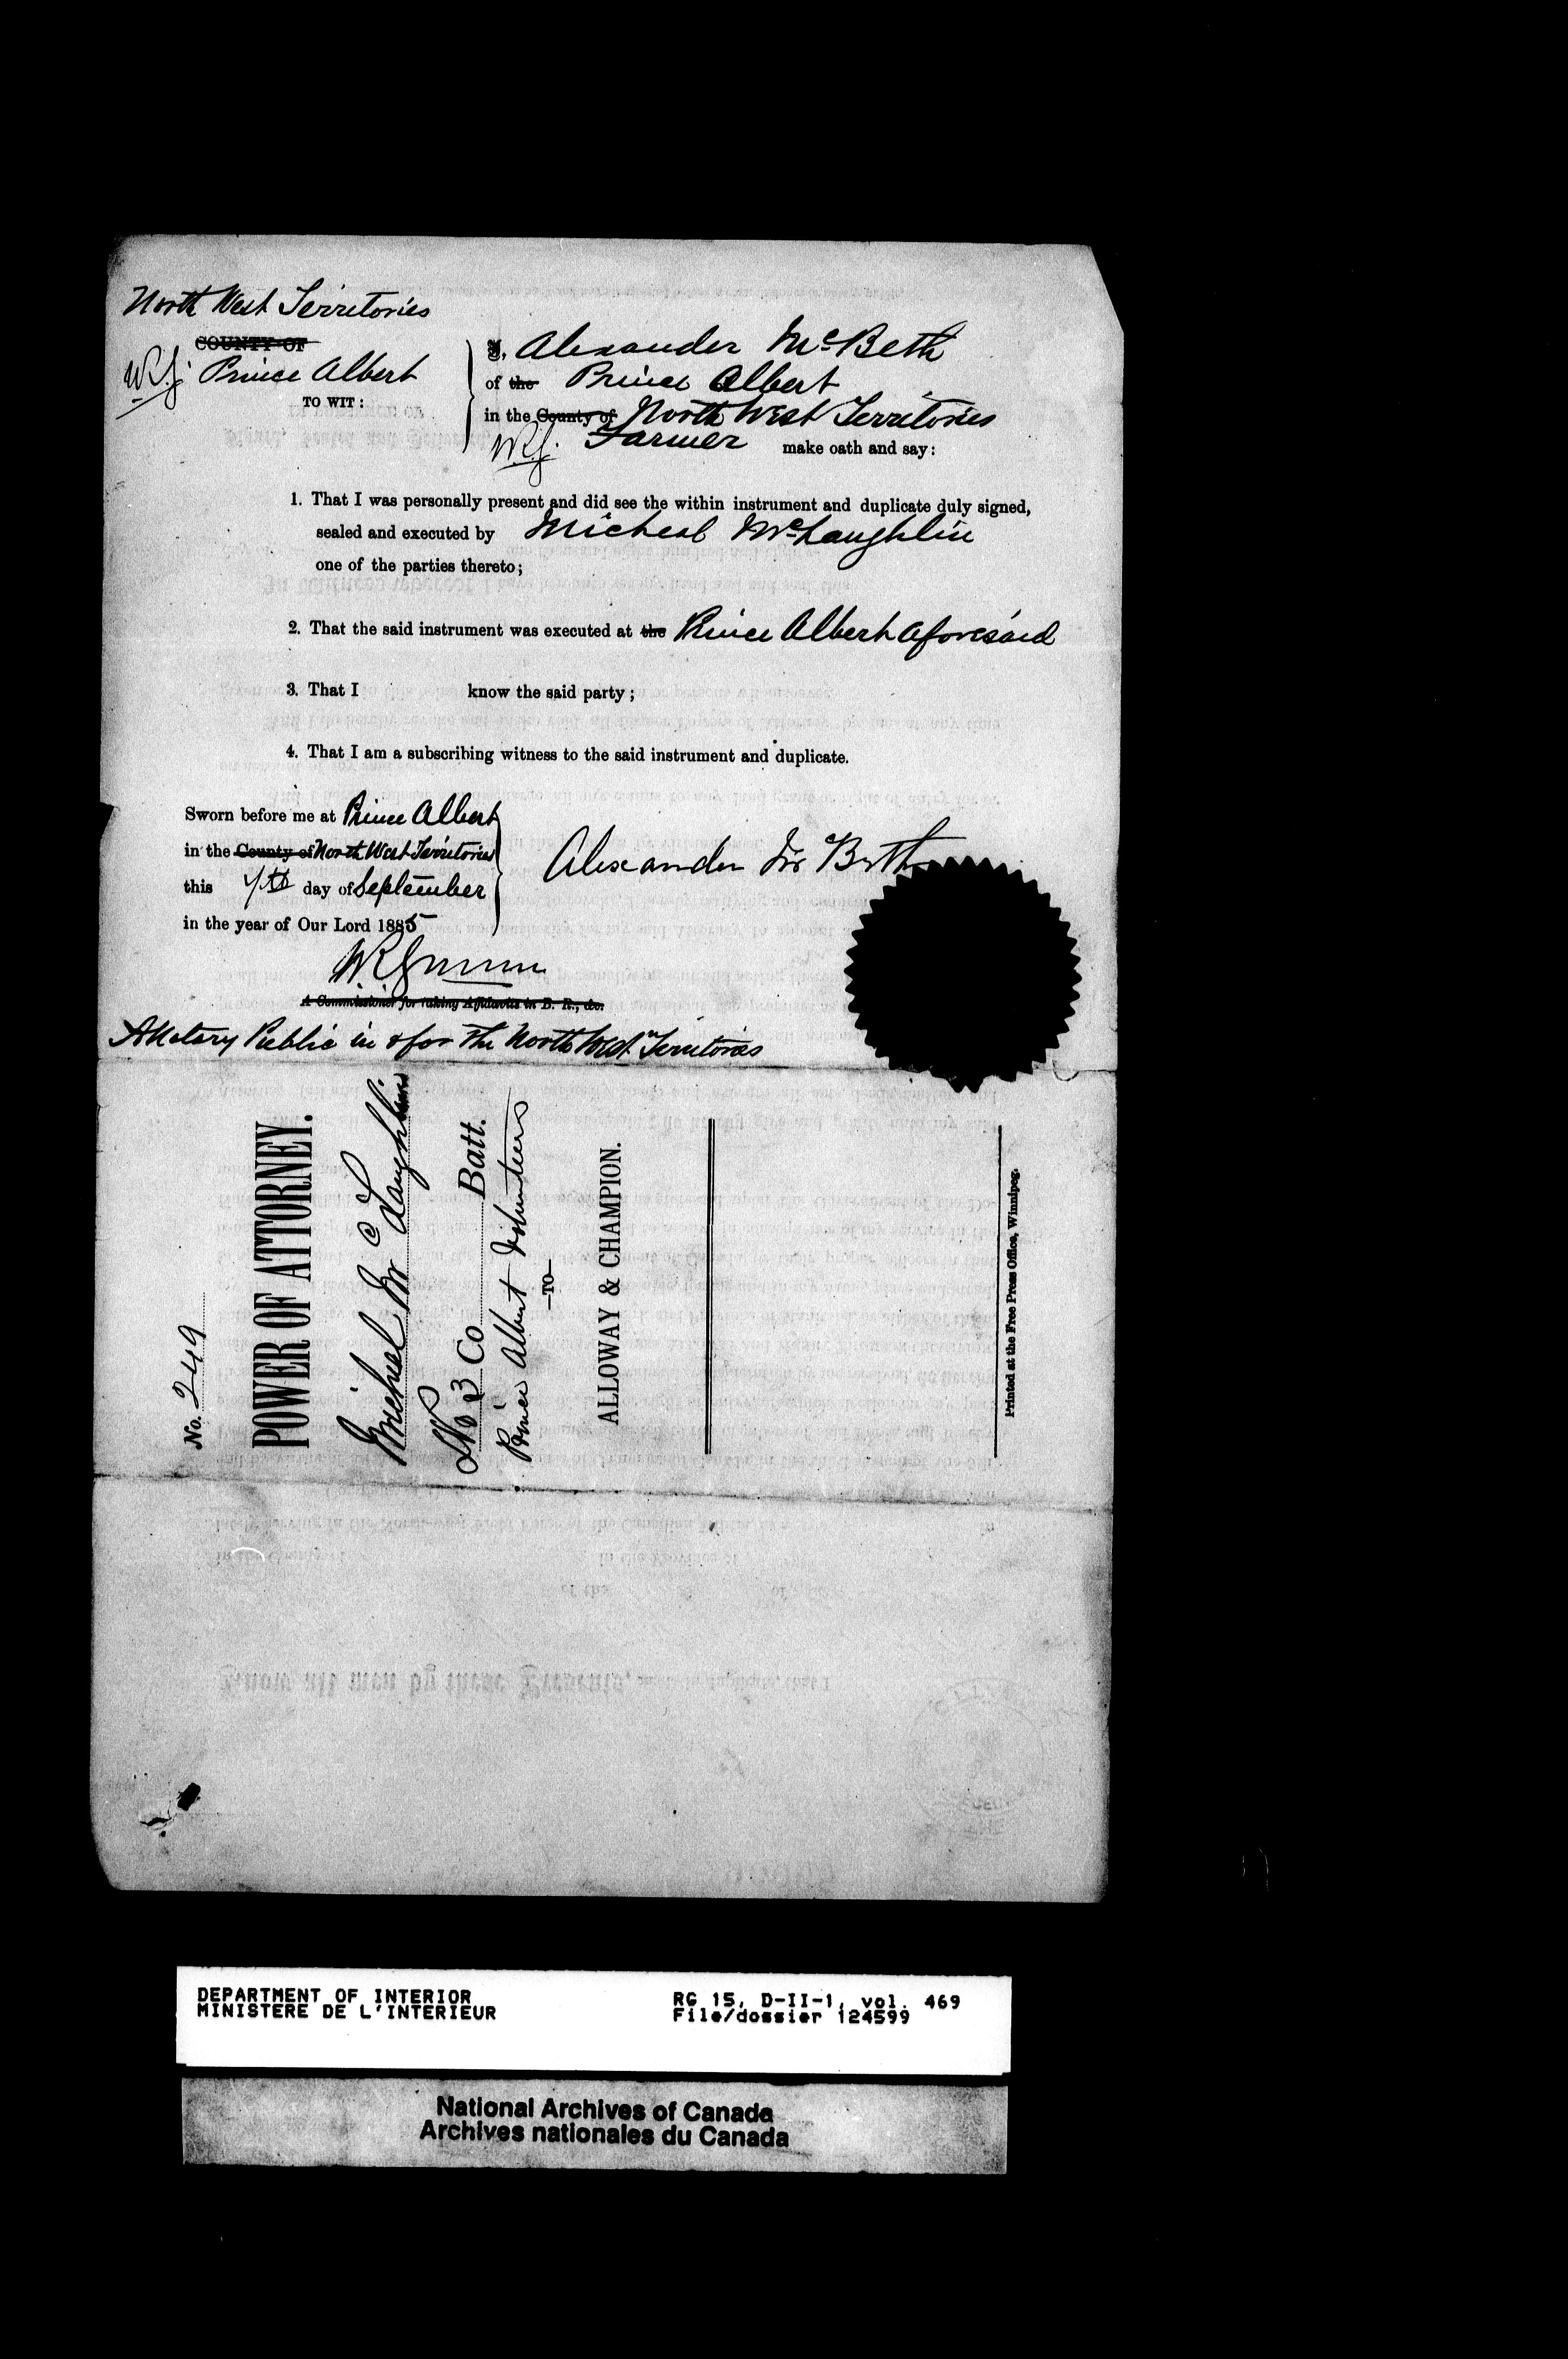 North West Territories
COUNTY OF
W.R.G. Prince Albert
TO WIT:
I, Alexander McBeth
of the Prince Albert
in the County of North West Territories
W.R.G. Farmer make oath and say:
1. That I was personally present and did see the within instrument and duplicate duly signed,
sealed and executed by Micheal McLaughlin
one of the parties thereto;
2. That the said instrument was executed at the Prince Albert aforesaid
3. That I know the said party;
4. That I am a subscribing witness to the said instrument and duplicate.
Sworn before me at Prince Albert
in the County of North West Territories
this 7th day of September
in the year of Our Lord 1885
Alexander Mc Beth
A Commissioner for taking Affidavits in B. R., &c.
A Notary Public in & for the North West Territories
No. 249
POWER OF ATTORNEY.
Micheal McLaughlin
No 3 Co Batt.
Prince Albert Volunteers
—TO—
ALLOWAY & CHAMPION.
Printed at the Free Press Office, Winnipeg.
Know all men by these Presents,
DEPARTMENT OF INTERIOR
MINISTERE DE L'INTERIEUR
RG 15, D-II-1, vol. 469
File/dossier 124599
National Archives of Canada
Archives nationales du Canada